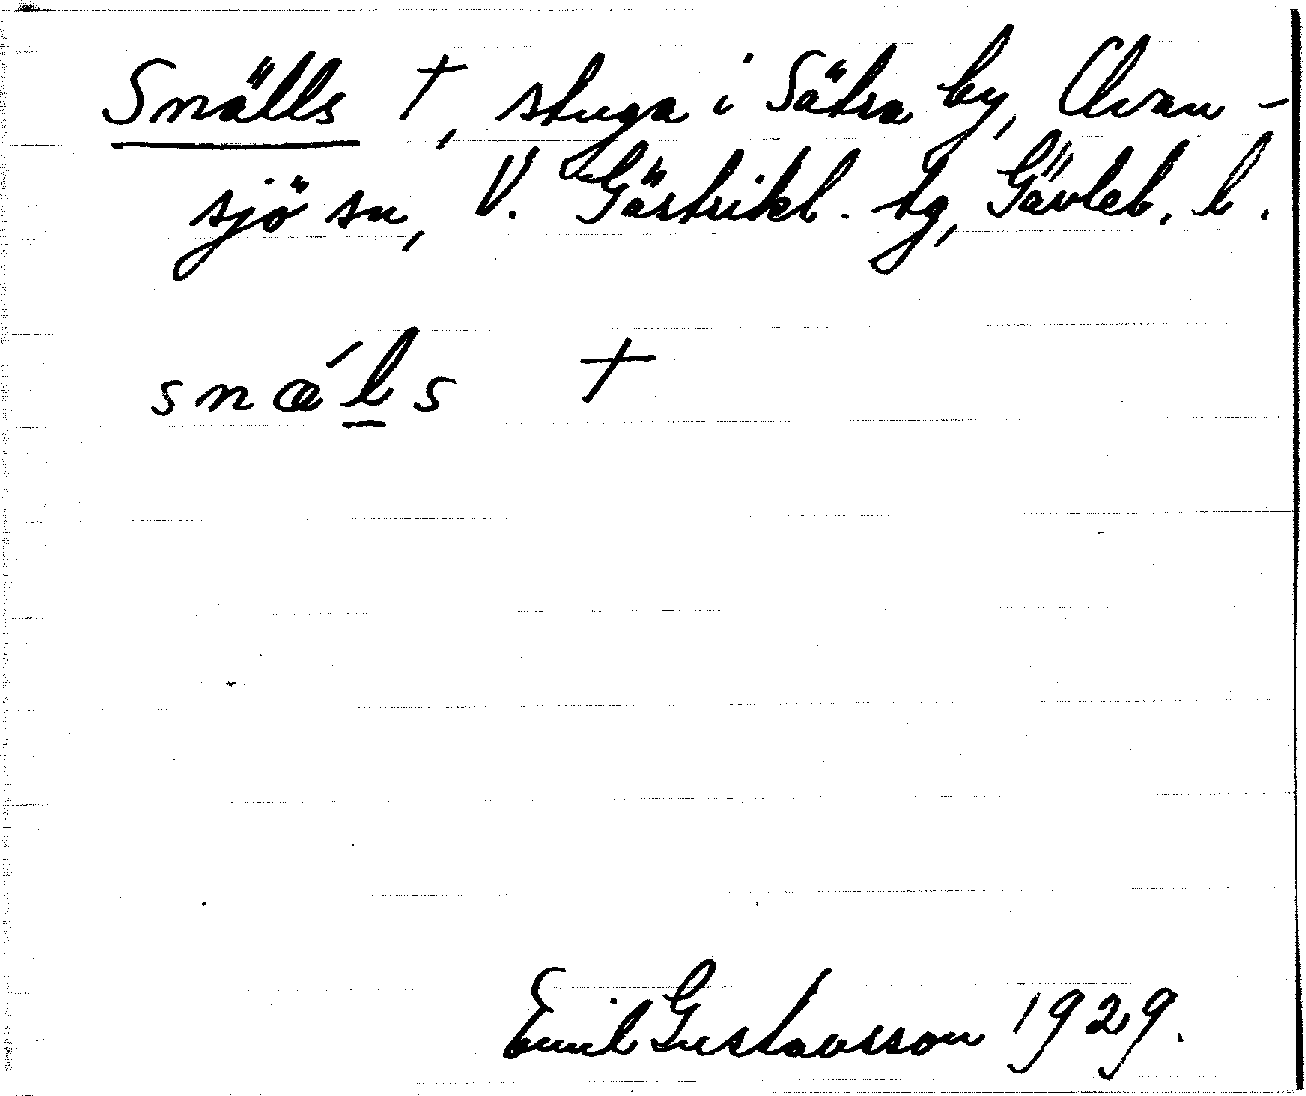 Snälls †, stuga i Sätra by, Ovan-
sjö sn, V. Gästrikl. tg, Gävleb. l.
snǽl̲s †
Emil Gustavsson 1929.